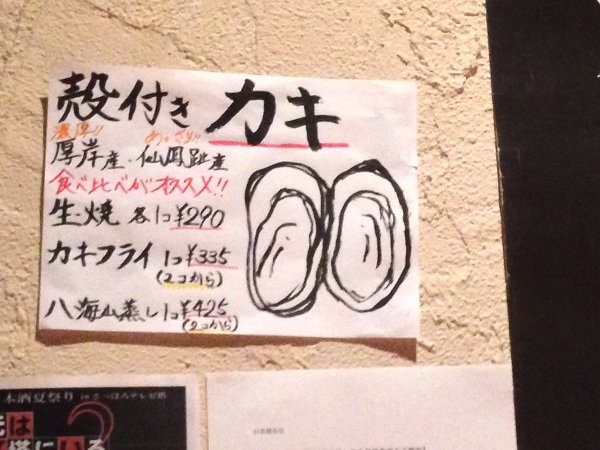 殻付きカキ
濃厚!! あっさり!!
厚岸産・仙鳳趾産
食べ比べがオススメ!!
生・焼 各1コ¥290
カキフライ 1コ¥335
(2コから)
八海山蒸し 1コ¥425
(2コから)
本酒夏祭り in さっぽろテレビ塔
は
塔にいる